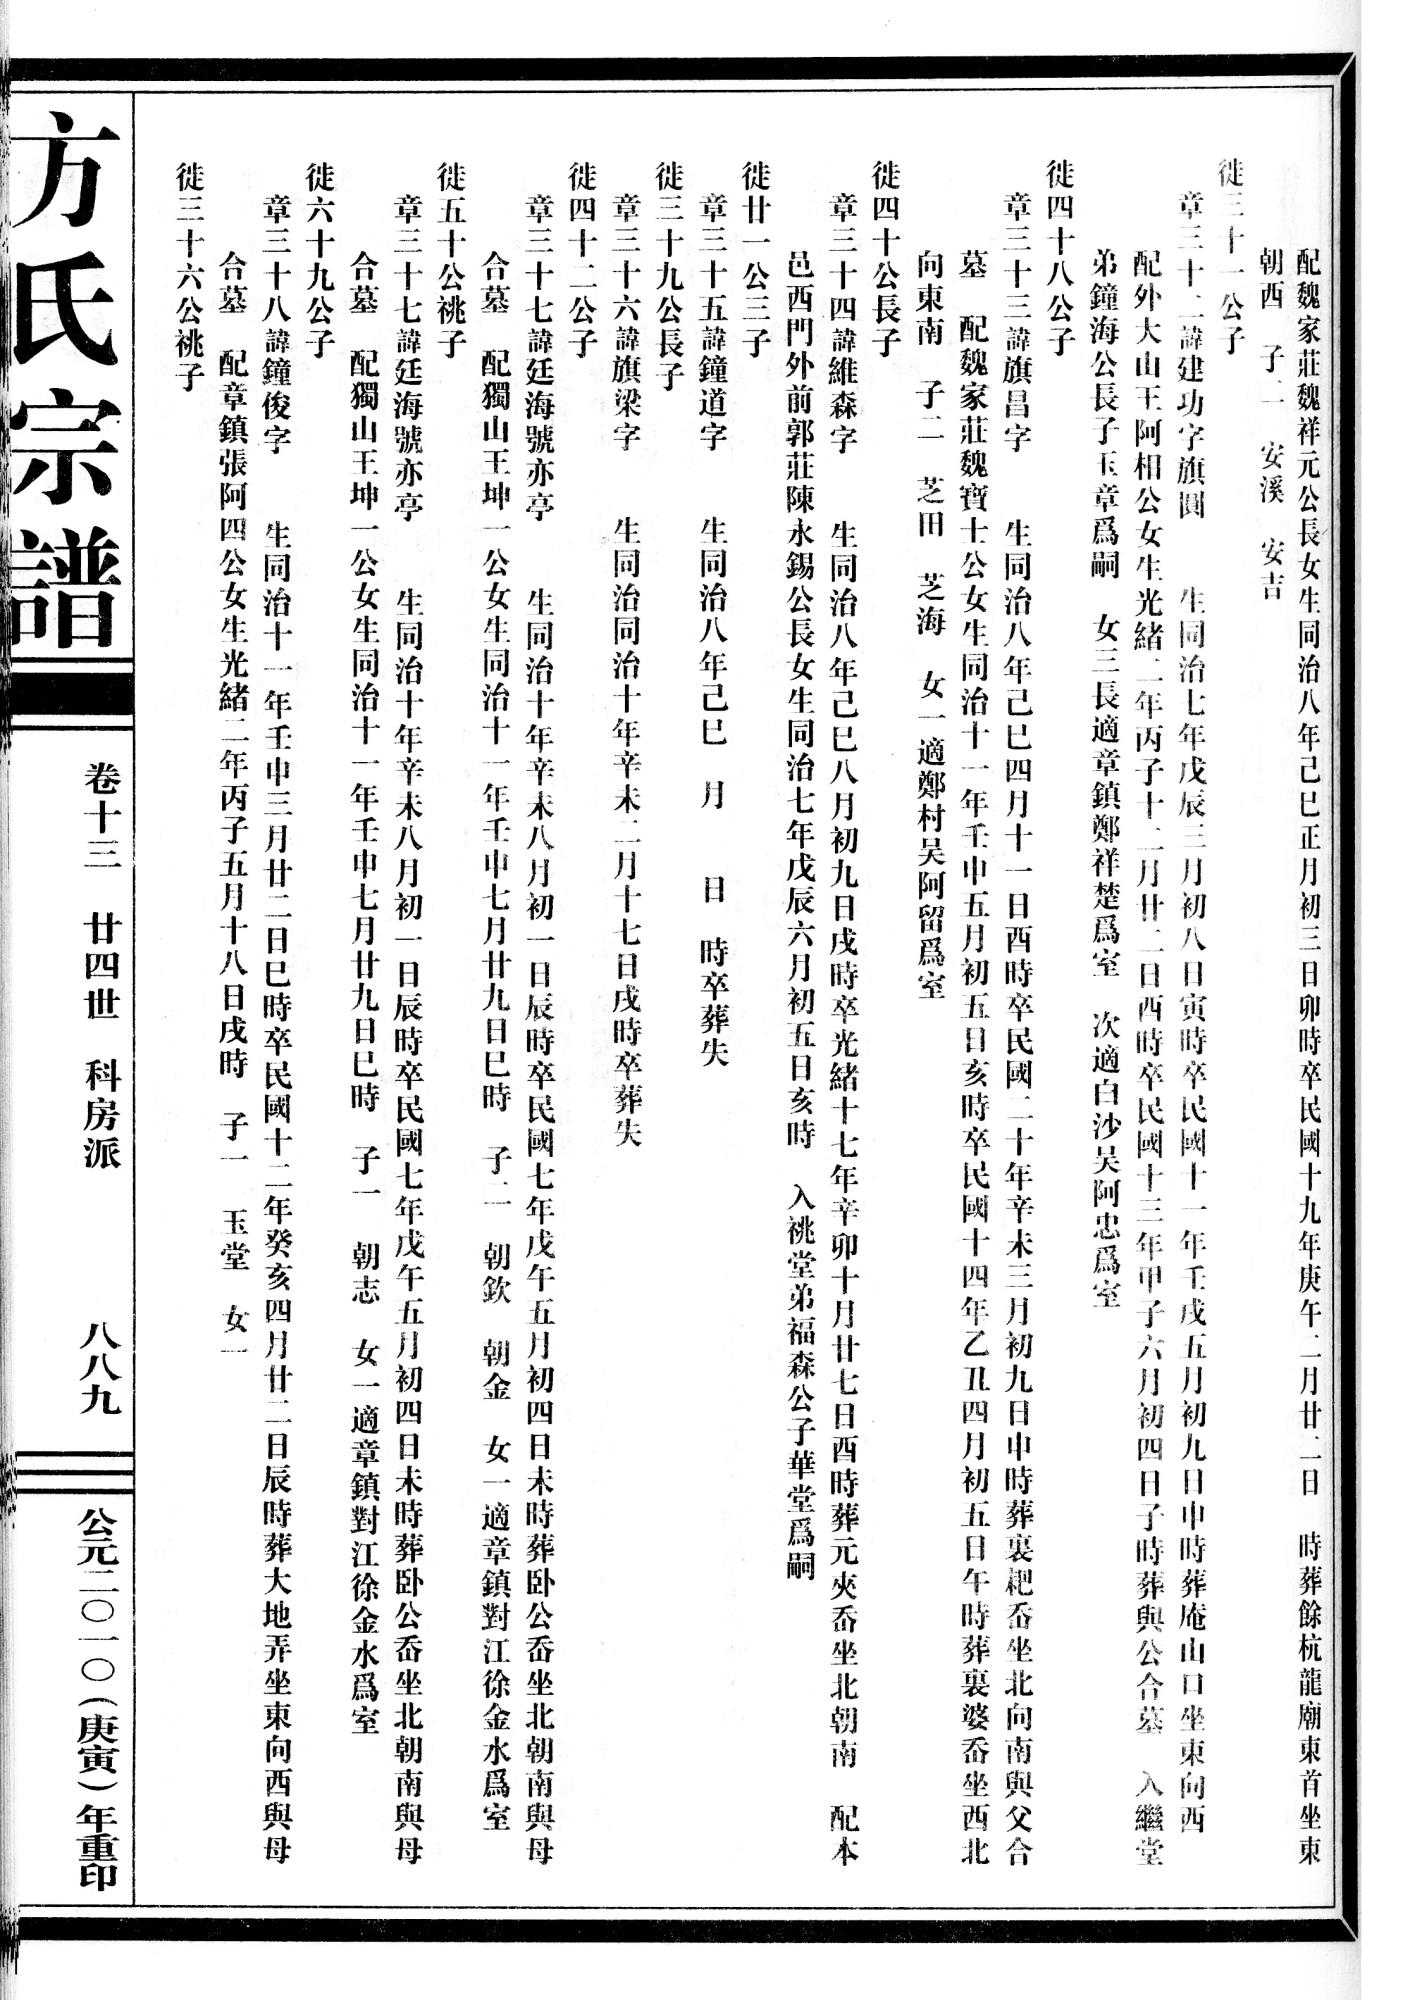 配魏家莊魏祥元公長女生同治八年己巳正月初三日卯時卒民國十九年庚午二月廿二日　時葬餘杭龍廟東首坐東
朝西　子二　安溪　安吉
徙三十一公子
章三十二諱建功字旗圓　生同治七年戊辰三月初八日寅時卒民國十一年壬戌五月初九日申時葬庵山口坐東向西
配外大山王阿相公女生光緒二年丙子十二月廿二日酉時卒民國十三年甲子六月初四日子時葬與公合墓　入繼堂
弟鐘海公長子玉章爲嗣　女三長適章鎮鄭祥楚爲室　次適白沙吴阿忠爲室
徙四十八公子
章三十三諱旗昌字　生同治八年己巳四月十一日酉時卒民國二十年辛未三月初九日申時葬裏耙岙坐北向南與父合
墓　配魏家莊魏寶士公女生同治十一年壬申五月初五日亥時卒民國十四年乙丑四月初五日午時葬裏婆岙坐西北
向東南　子二　芝田　芝海　女一適鄭村吴阿留爲室
徙四十公長子
章三十四諱維森字　生同治八年己巳八月初九日戌時卒光緒十七年辛卯十月廿七日酉時葬元夾岙坐北朝南　配本
邑西門外前郭莊陳永錫公長女生同治七年戊辰六月初五日亥時　入祧堂弟福森公子華堂爲嗣
徙廿一公三子
章三十五諱鐘道字　生同治八年己巳　月　日　時卒葬失
徙三十九公長子
章三十六諱旗梁字　生同治同治十年辛未二月十七日戌時卒葬失
徙四十二公子
章三十七諱廷海號亦亭　生同治十年辛未八月初一日辰時卒民國七年戊午五月初四日未時葬卧公岙坐北朝南與母
合墓　配獨山王坤一公女生同治十一年壬申七月廿九日巳時　子二　朝欽　朝金　女一適章鎮對江徐金水爲室
徙五十公祧子
章三十七諱廷海號亦亭　生同治十年辛未八月初一日辰時卒民國七年戊午五月初四日未時葬卧公岙坐北朝南與母
合墓　配獨山王坤一公女生同治十一年壬申七月廿九日巳時　子一　朝志　女一適章鎮對江徐金水爲室
徙六十九公子
章三十八諱鐘俊字　生同治十一年壬申三月廿二日巳時卒民國十二年癸亥四月廿二日辰時葬大地弄坐東向西與母
合墓　配章鎮張阿四公女生光緒二年丙子五月十八日戌時　子一　玉堂　女一
徙三十六公祧子
方氏宗譜
卷十三　廿四世　科房派
八八九
公元二〇一〇(庚寅)年重印